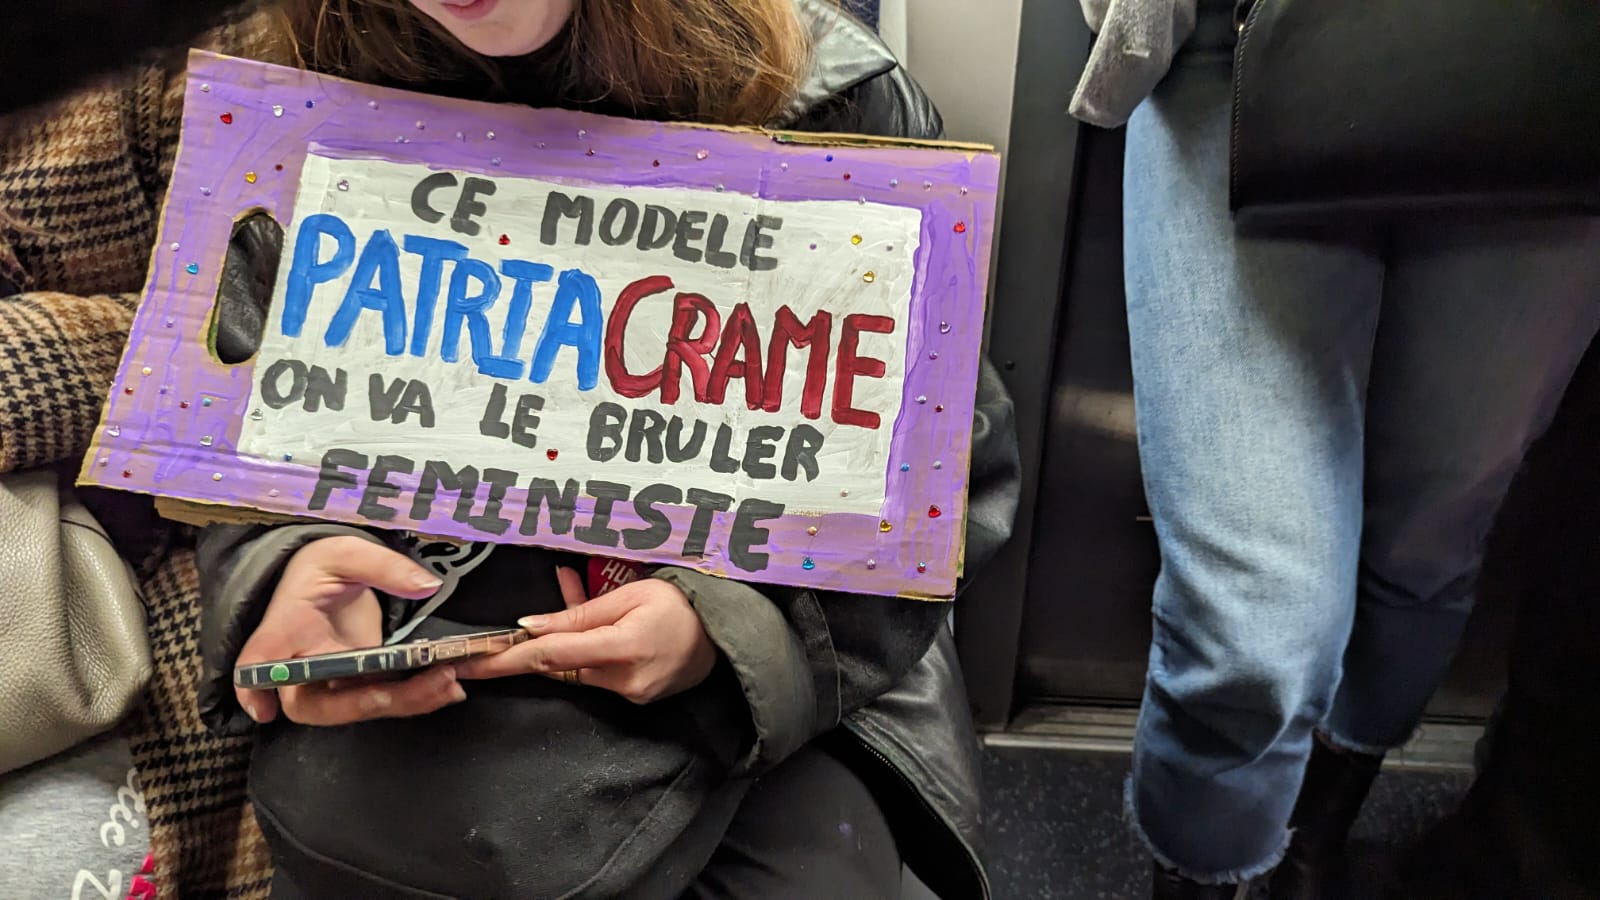 CE MODELE
PATRIACRAME
ON VA LE BRULER
FEMINISTE